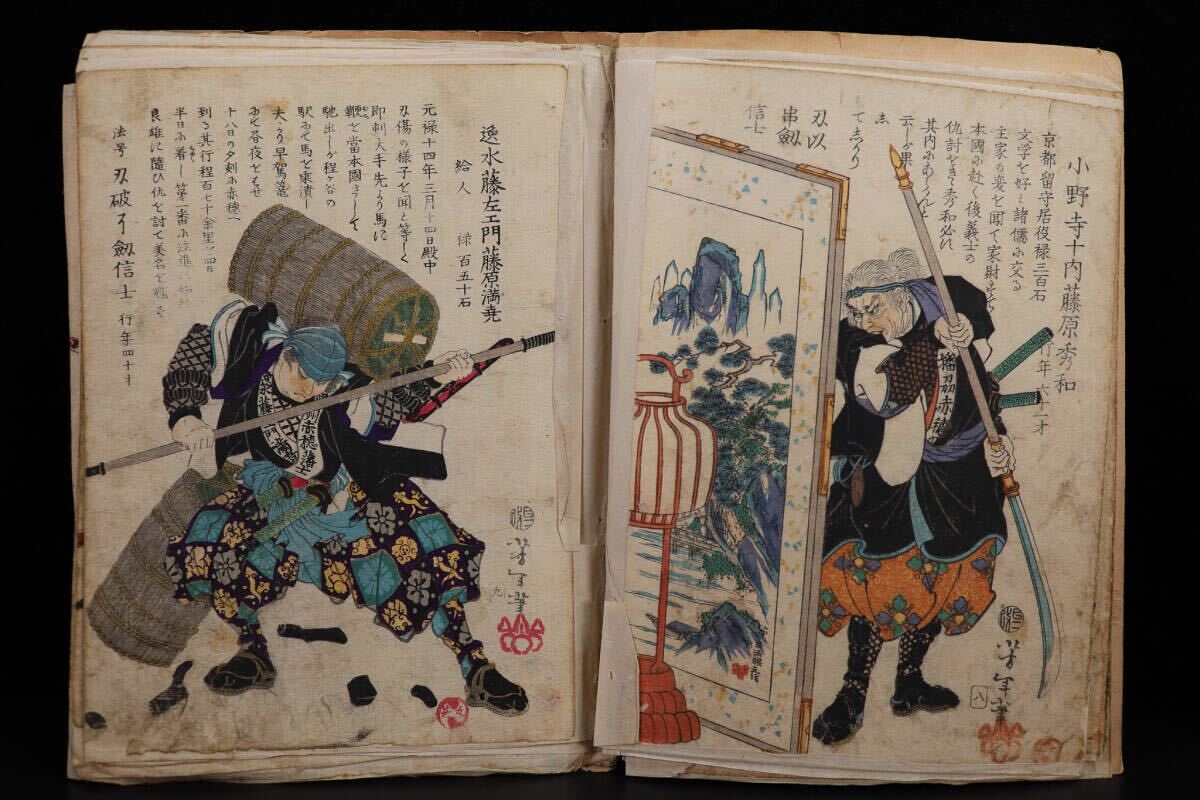 小野寺十内藤原秀和
行年六十一才
京都留守居役禄三百石
文学を好ミ諸儒に交る
主家の変を聞て家財を
本國に赴く後義士の
仇討をきて秀和必
其内にあらんと
云しが果
し
てしかり
刃以
串劔
信士
播刕赤穂
芳年筆
八
逸水藤左エ門藤原満尭
給人 禄百五十石
元禄十四年三月十四日殿中
刃傷の様子を聞と等しく
即刻大手先より馬に
鞭を當本國さして
馳出しが程ヶ谷の
駅にて馬を乗潰し
夫より早駕篭
にて昼夜をはせ
十八日の夕刻に赤穂へ
到る其行程百七十余里を四日
半日に着し第一番に注進
良雄に隨ひ仇を討て美名を残す
法号 刃破了劔信士 行年四十才
赤穂藩士
芳年筆
九